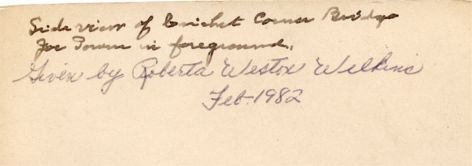 Side view of Cricket Corner Bridge
for Town in foreground.
Given by Roberta Weston Wilkins
Feb-1982